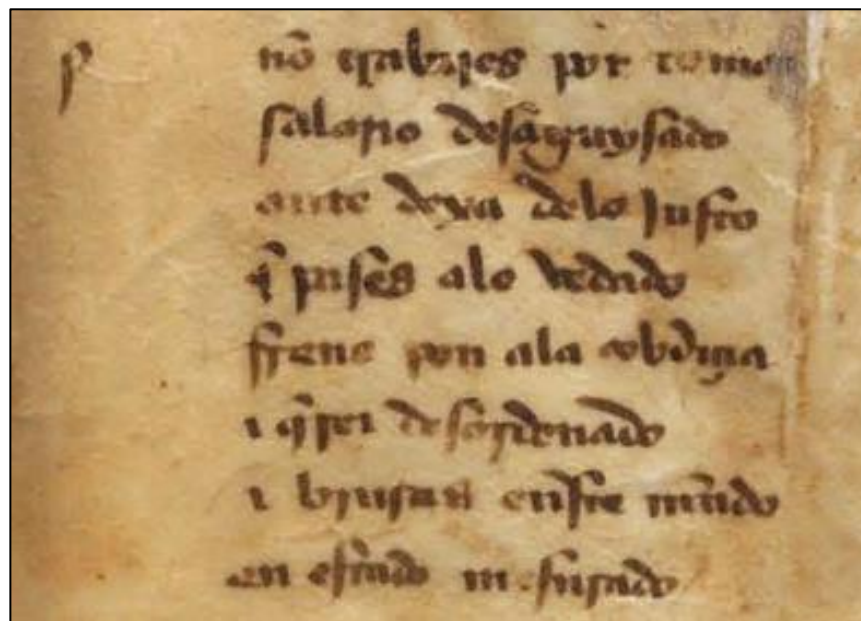 p
nõ trabaies por toma
salario desaguysado
ante dexa delo Justo
q̃ pases alo vedado
freno pon ala cobdiçia
i q̃rer desordenado
i biuras eneste mũdo
en estado mesurado